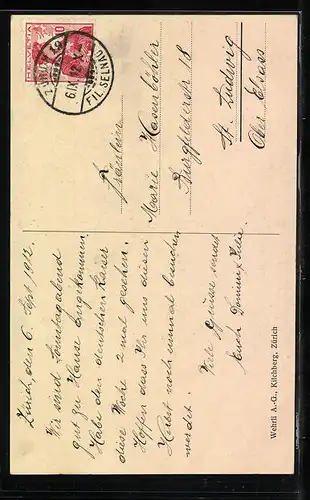 Zürich, den 6. Sept 1912.
Wir sind Sonntagabend
gut zu Hause angekommen.
Habe den deutschen Kaiser
diese Woche 2 mal gesehen.
Hoffen dass Ihr uns diesen
Herbst noch einmal besuchen
werdet.
Viele Grüsse sendet
Euch Dominik
Fräulein
Marie Hasenböhler
Burgfelderstr 18
St. Ludwig
Ober Elsass
HELVETIA
10
6.IX.12.X
FIL. SELNAU
Wehrli A.-G., Kilchberg, Zürich